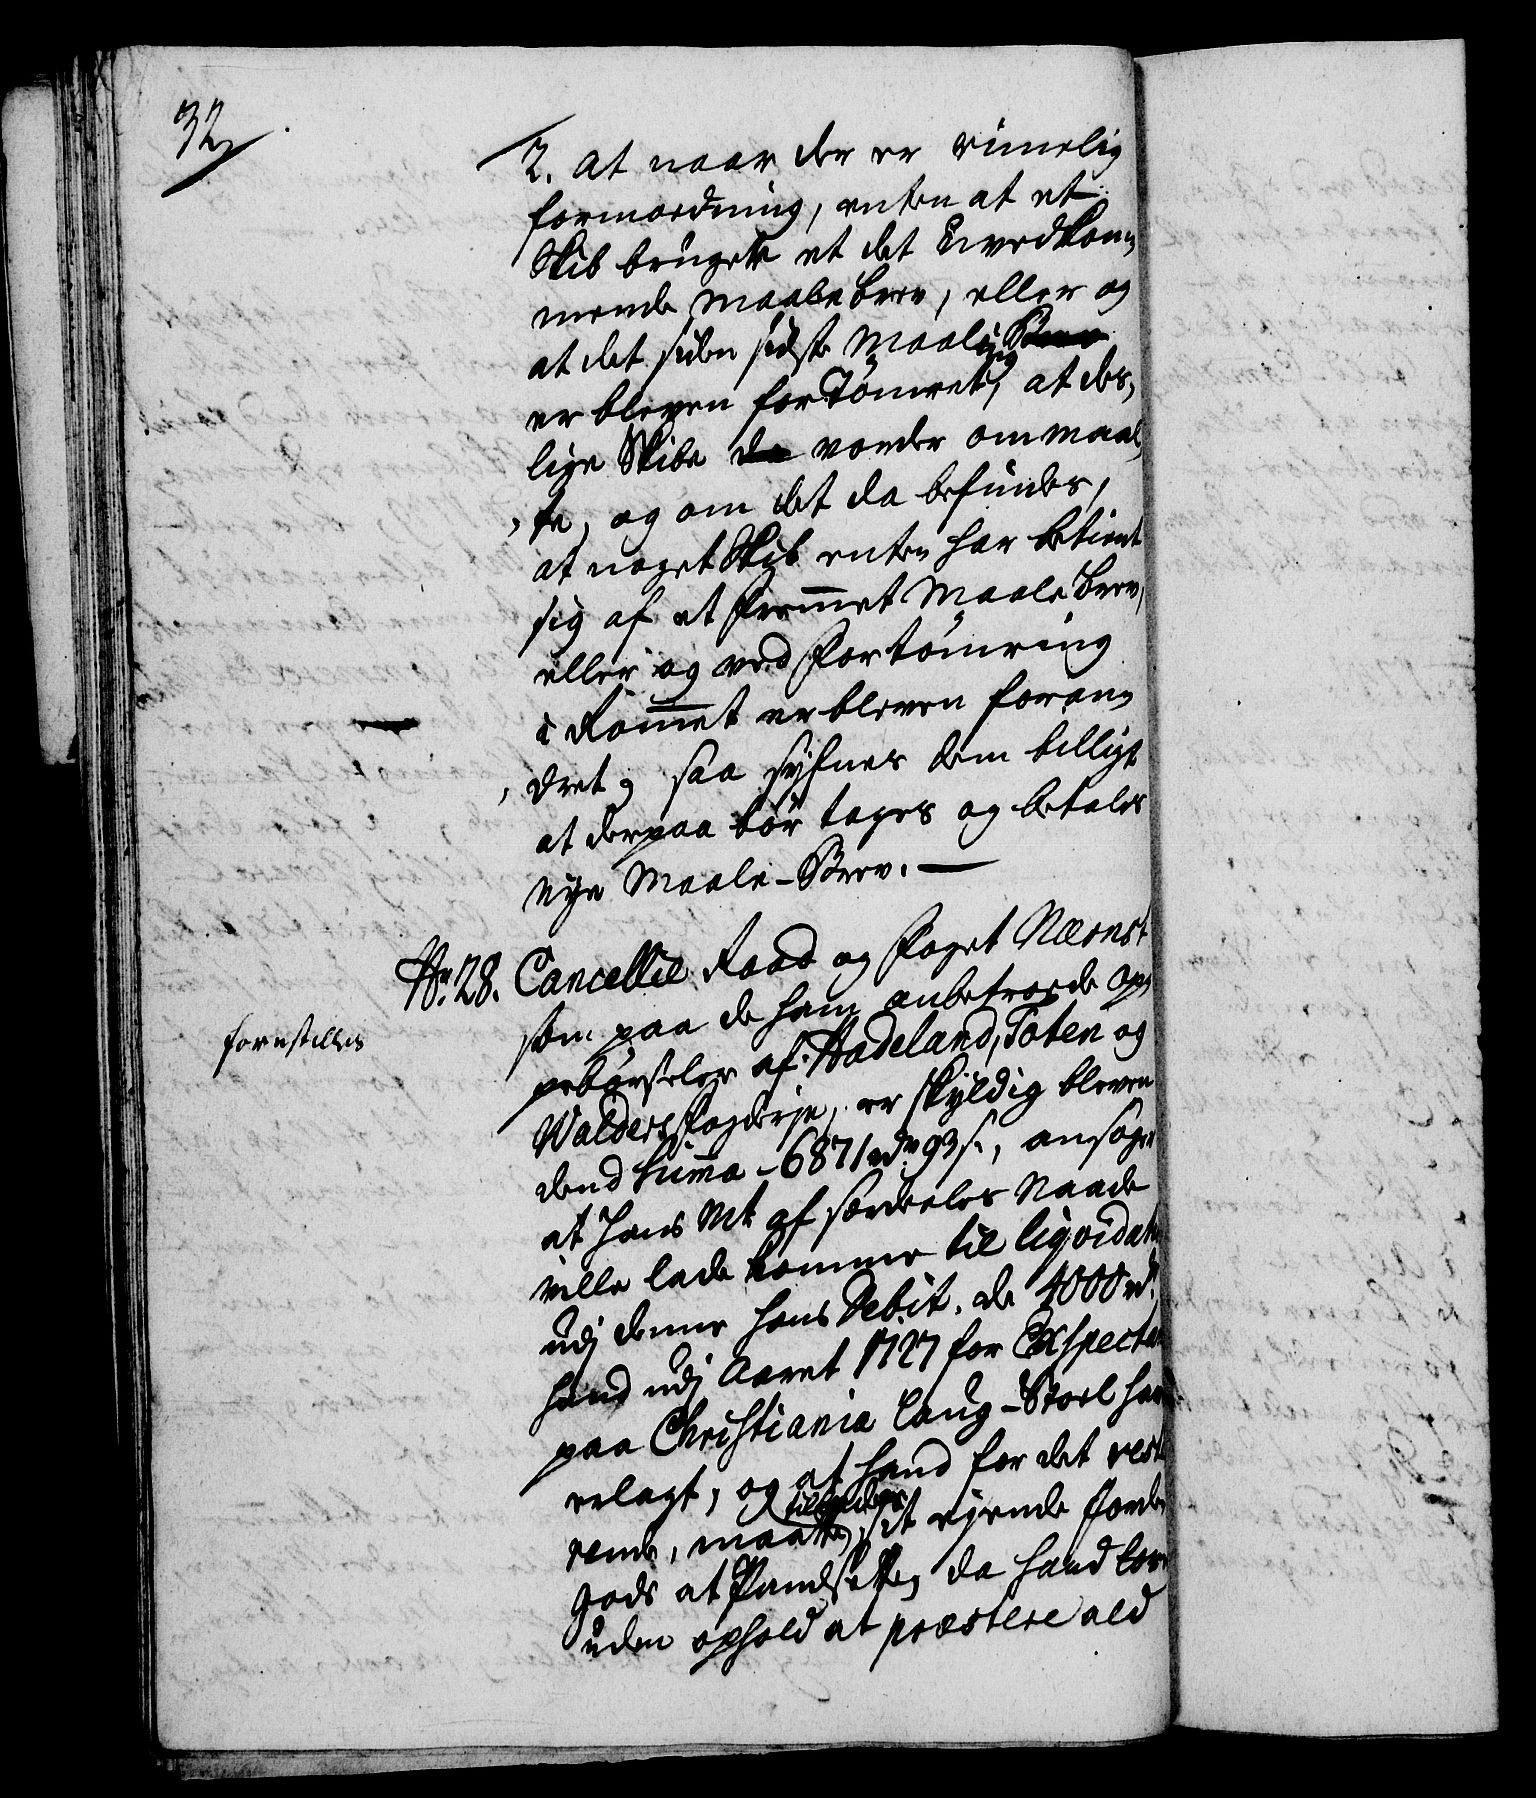 32
2. at naar der er rimelig
formodning, enten at et
Skib bruger et det Uvedkom¬
mende Maale brev, eller og
at det siden sidste Maaling
er bleven fortømret, at des¬
lige Skibe vorder ommaal¬
te, og om det da befindes,
at noget Skib enten har betient
sig af et fremmet Maale brev,
eller og ved fortømring
i Rommet er bleven foran¬
dret; saa synes dem billigt
at derpaa bør tages og betales
nye Maale-Brev.
No. 28. Cancellie Raad og Foget Nærnst
som paa de ham anbetroede op¬
pebørseler af Hadeland, Toten og
Walders Fogderie, er skyldig bleven
dend Summa - 6871 rdr 93 s., ansøger
at Hans Mt. af særdeeles Naade
ville lade komme til liqvidation
udj denne hans Debit. de 4000 rd.
hand udj Aaret 1727 for Exspectance
paa Christiania Laug-Stoel har
erlagt, og at hand for det reste¬
rende, maatte tillades sit eyende Jorde¬
gods at Pandsette, da hand lover
uden ophold at præstere ald
forestilles